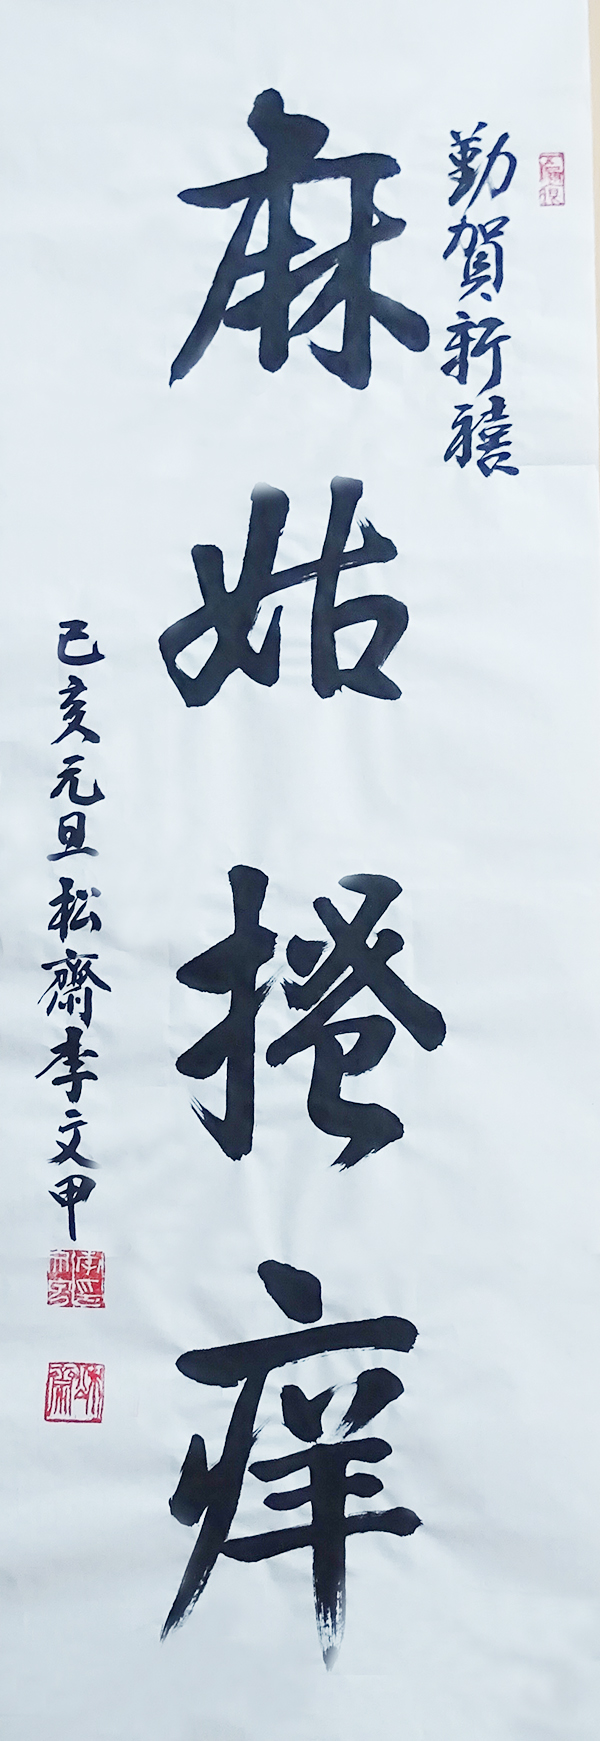 勤賀新禧
麻姑搔痒
己亥元旦松齋李文甲